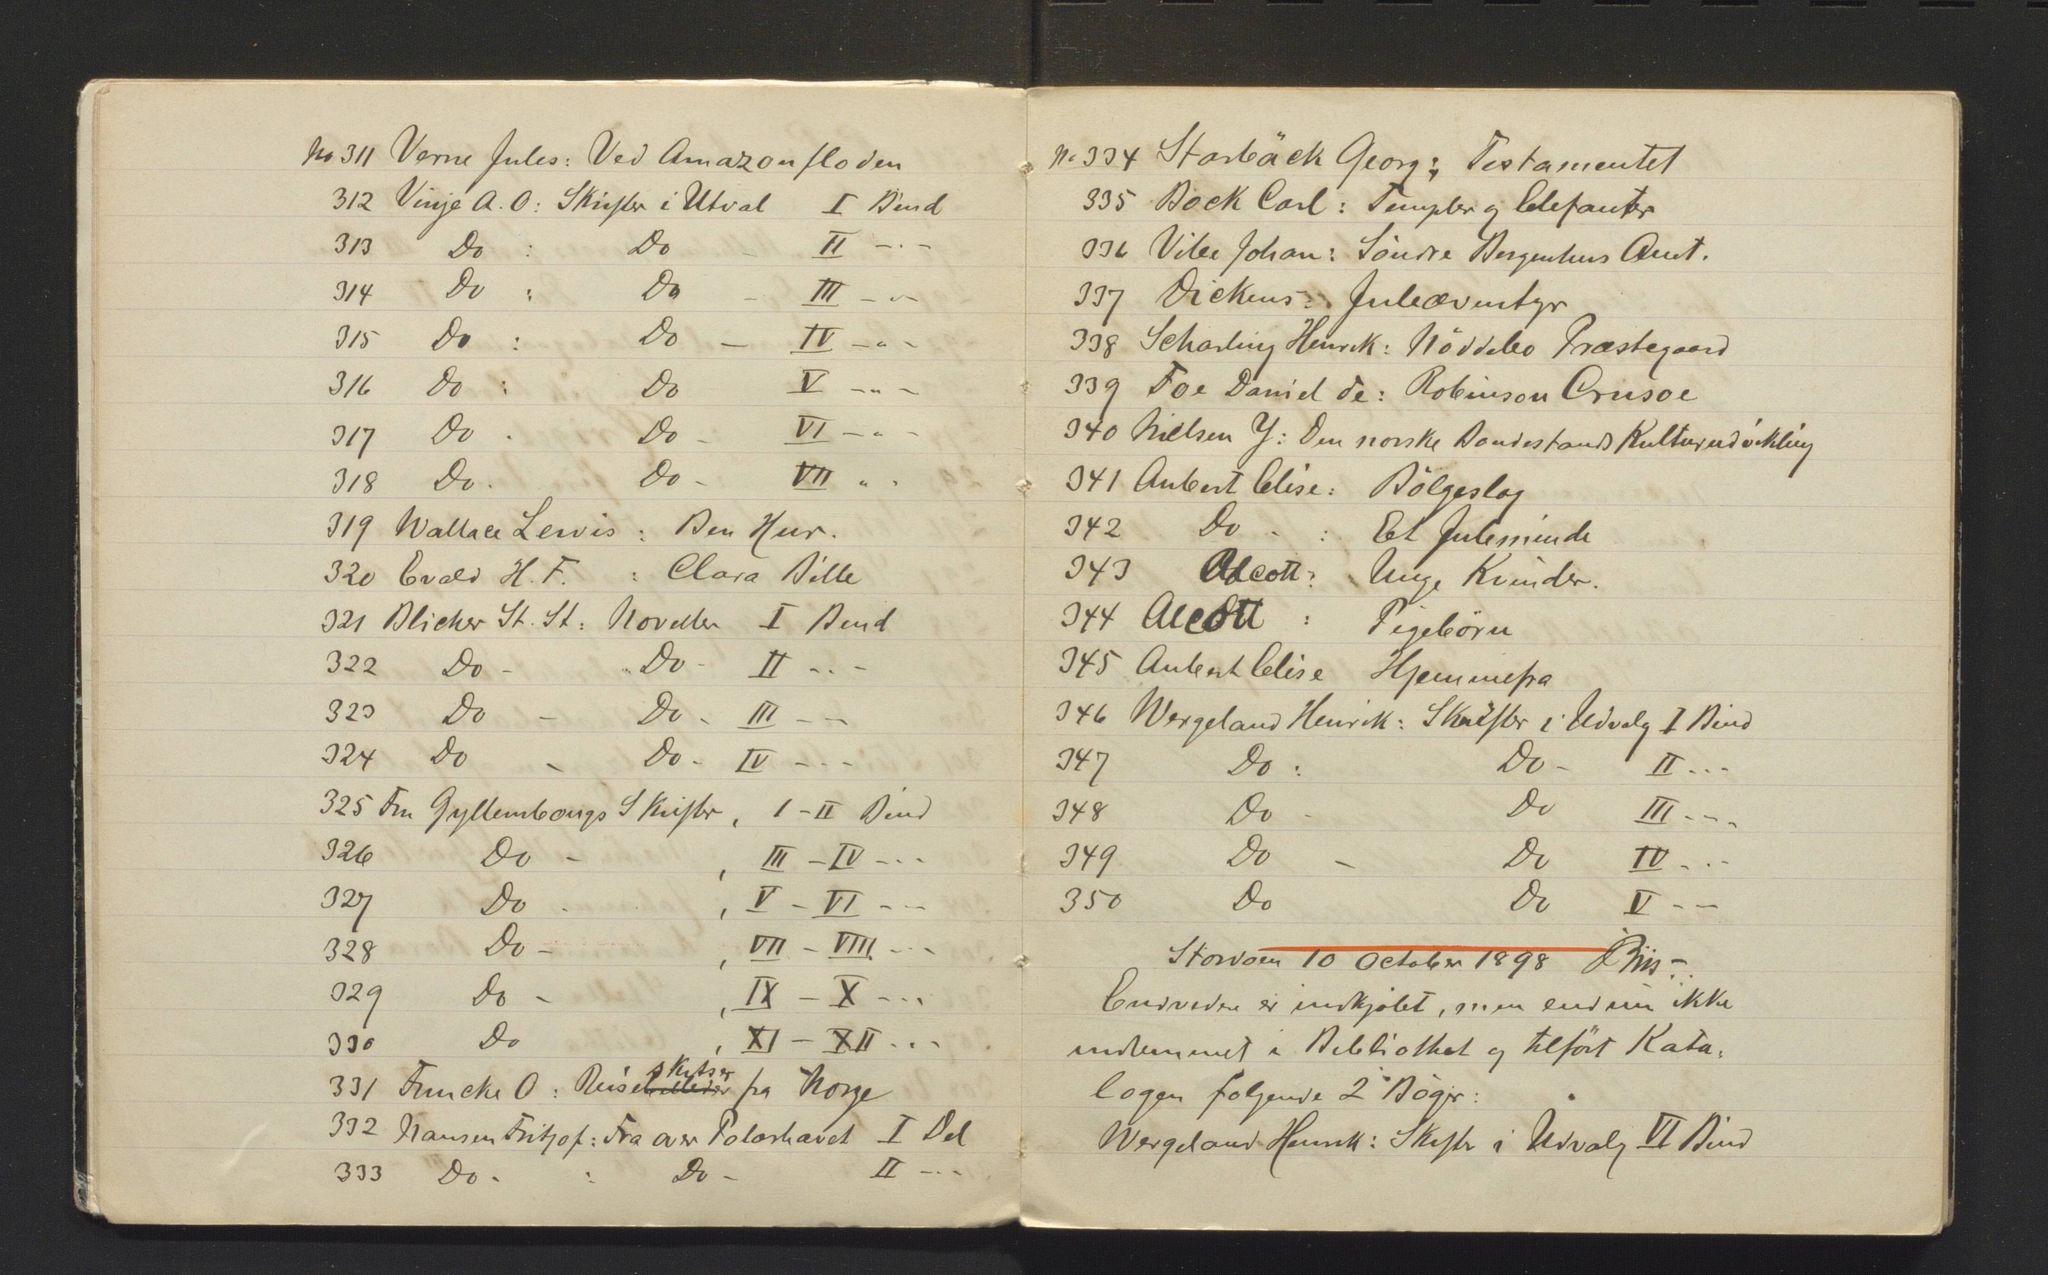 No 311 Verne Jules: Ved Amazonfloden
312 Vinje A. O: Skrifter i Utval I Bind
313 Do : Do - II -"-
314 Do : Do - III -"-
315 Do : Do - IV -"-
316 Do : Do V -"-
317 Do - Do - VI -"-
318 Do - Do - VII " -
319 Wallace Lewis : Ben Hur.
320 Evald H. F. : Clara Bille
321 Blicher St. St: Noveller I Bind
322 Do - Do - II -"-
323 Do - Do - III - -
324 Do - Do - IV -"-
325 Fru Gyllembourgs Skrifter, I-II Bind
326 Do - , III - IV -"-
327 Do - , V - VI -"-
328 Do - , VII - VIII -"-
329 Do - , IX - X -"-
330 Do , XI - XII -"-
331 Funcke O: Reiseskitser fra Norge
332 Nansen Fritjof: Fra over Polarhavet I Del
333 Do - : Do - II -"-
No 334 Starbäck Georg: Testamentet
335 Bock Carl: Templer og Elefanter
336 Vibe Johan: Söndre Bergenhus Amt.
337 Dickens: Juleæventyr
338 Scharling Henrik: Nöddebo Præstegaard
339 Foe Daniel de: Robinson Crusoe
340 Nielsen Y: Den norske Bondestands Kulturudvikling
341 Aubert Elise: Bölgeslag
342 Do - : Et Juleminde
343 Alcott: Unge Kvinder.
344 Alcott : Pigebörn
345 Aubert Elise Hjemmefra
346 Wergeland Henrik: Skrifter i Udvalg I Bind
347 Do : Do - II -"-
348 Do - Do III -"-
349 Do - Do IV -"-
350 Do Do V - -
Storöen 10 October 1898 Riis
Endvidere er indkjöbt, men endnu ikke
indlemmet i Bibliothek og tilfört Kata-
logen følgende 2 Bøger:
Wergeland Henrik: Skrifter i Udvalg VI Bind